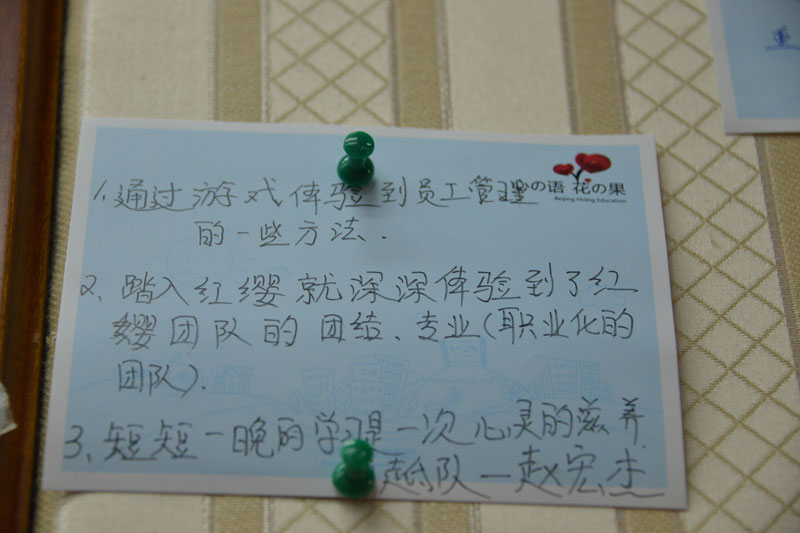 の语 花の果
Beijing Education
1、通过游戏体验到员工管理
的一些方法.
2、踏入红缨就深深体验到了红
缨团队的团结、专业(职业化的
团队).
3、短短一晚的学习是一次心灵的滋养.
队—赵宏杰